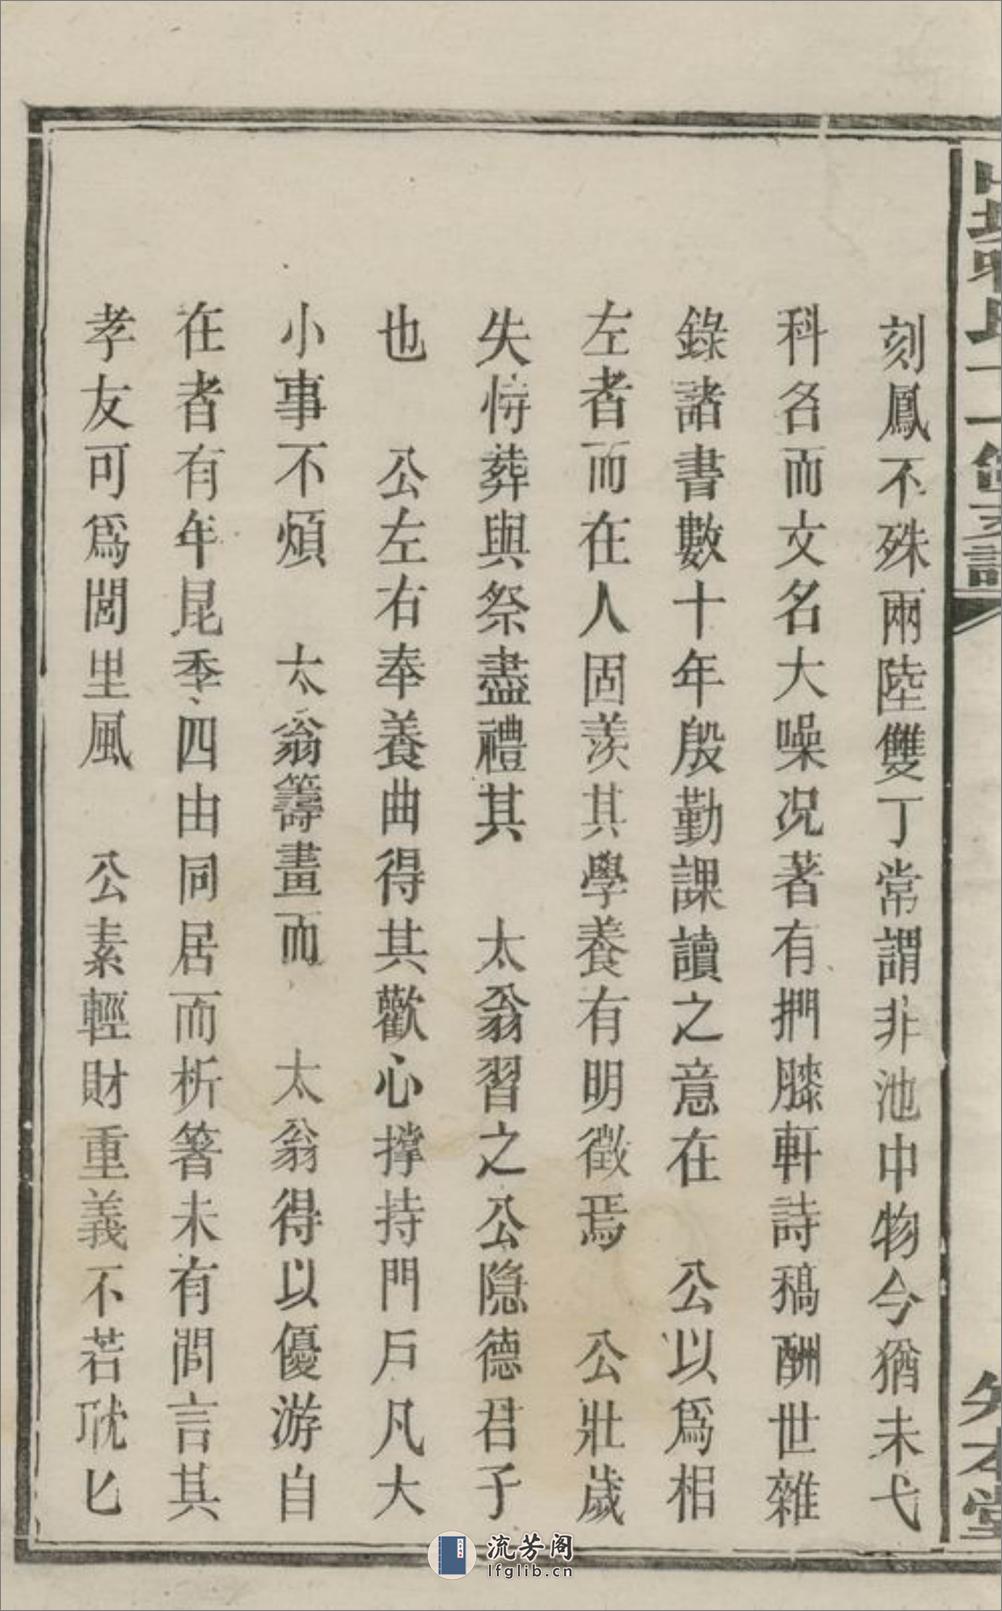 刻鳳不殊兩陸雙丁常謂非池中物今猶未弋
科名而文名大噪况著有捫膝軒詩稿酬世雜
錄諸書數十年殷勤課讀之意在　公以爲相
左者而在人固羨其學養有明徵焉　公壯歲
失恃葬與祭盡禮其　太翁習之公隐德君子
也　公左右奉養曲得其歡心撐持門戶凡大
小事不煩　太翁籌畫而　太翁得以優游自
在者有年昆季四由同居而析箸未有間言其
孝友可爲閭里風　公素輕財重義不若耽匕
支譜
本堂
流芳阁
lfglib.cn